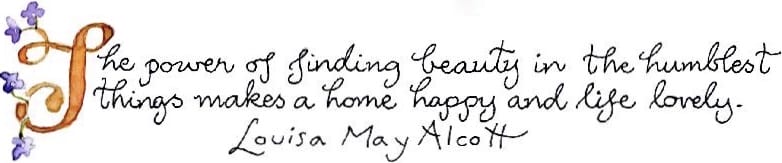 The power of finding beauty in the humblest
things makes a home happy and life lovely.
Louisa May Alcott